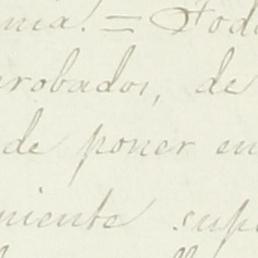 nia. = Todo
robados, de
de poner en
niente sup